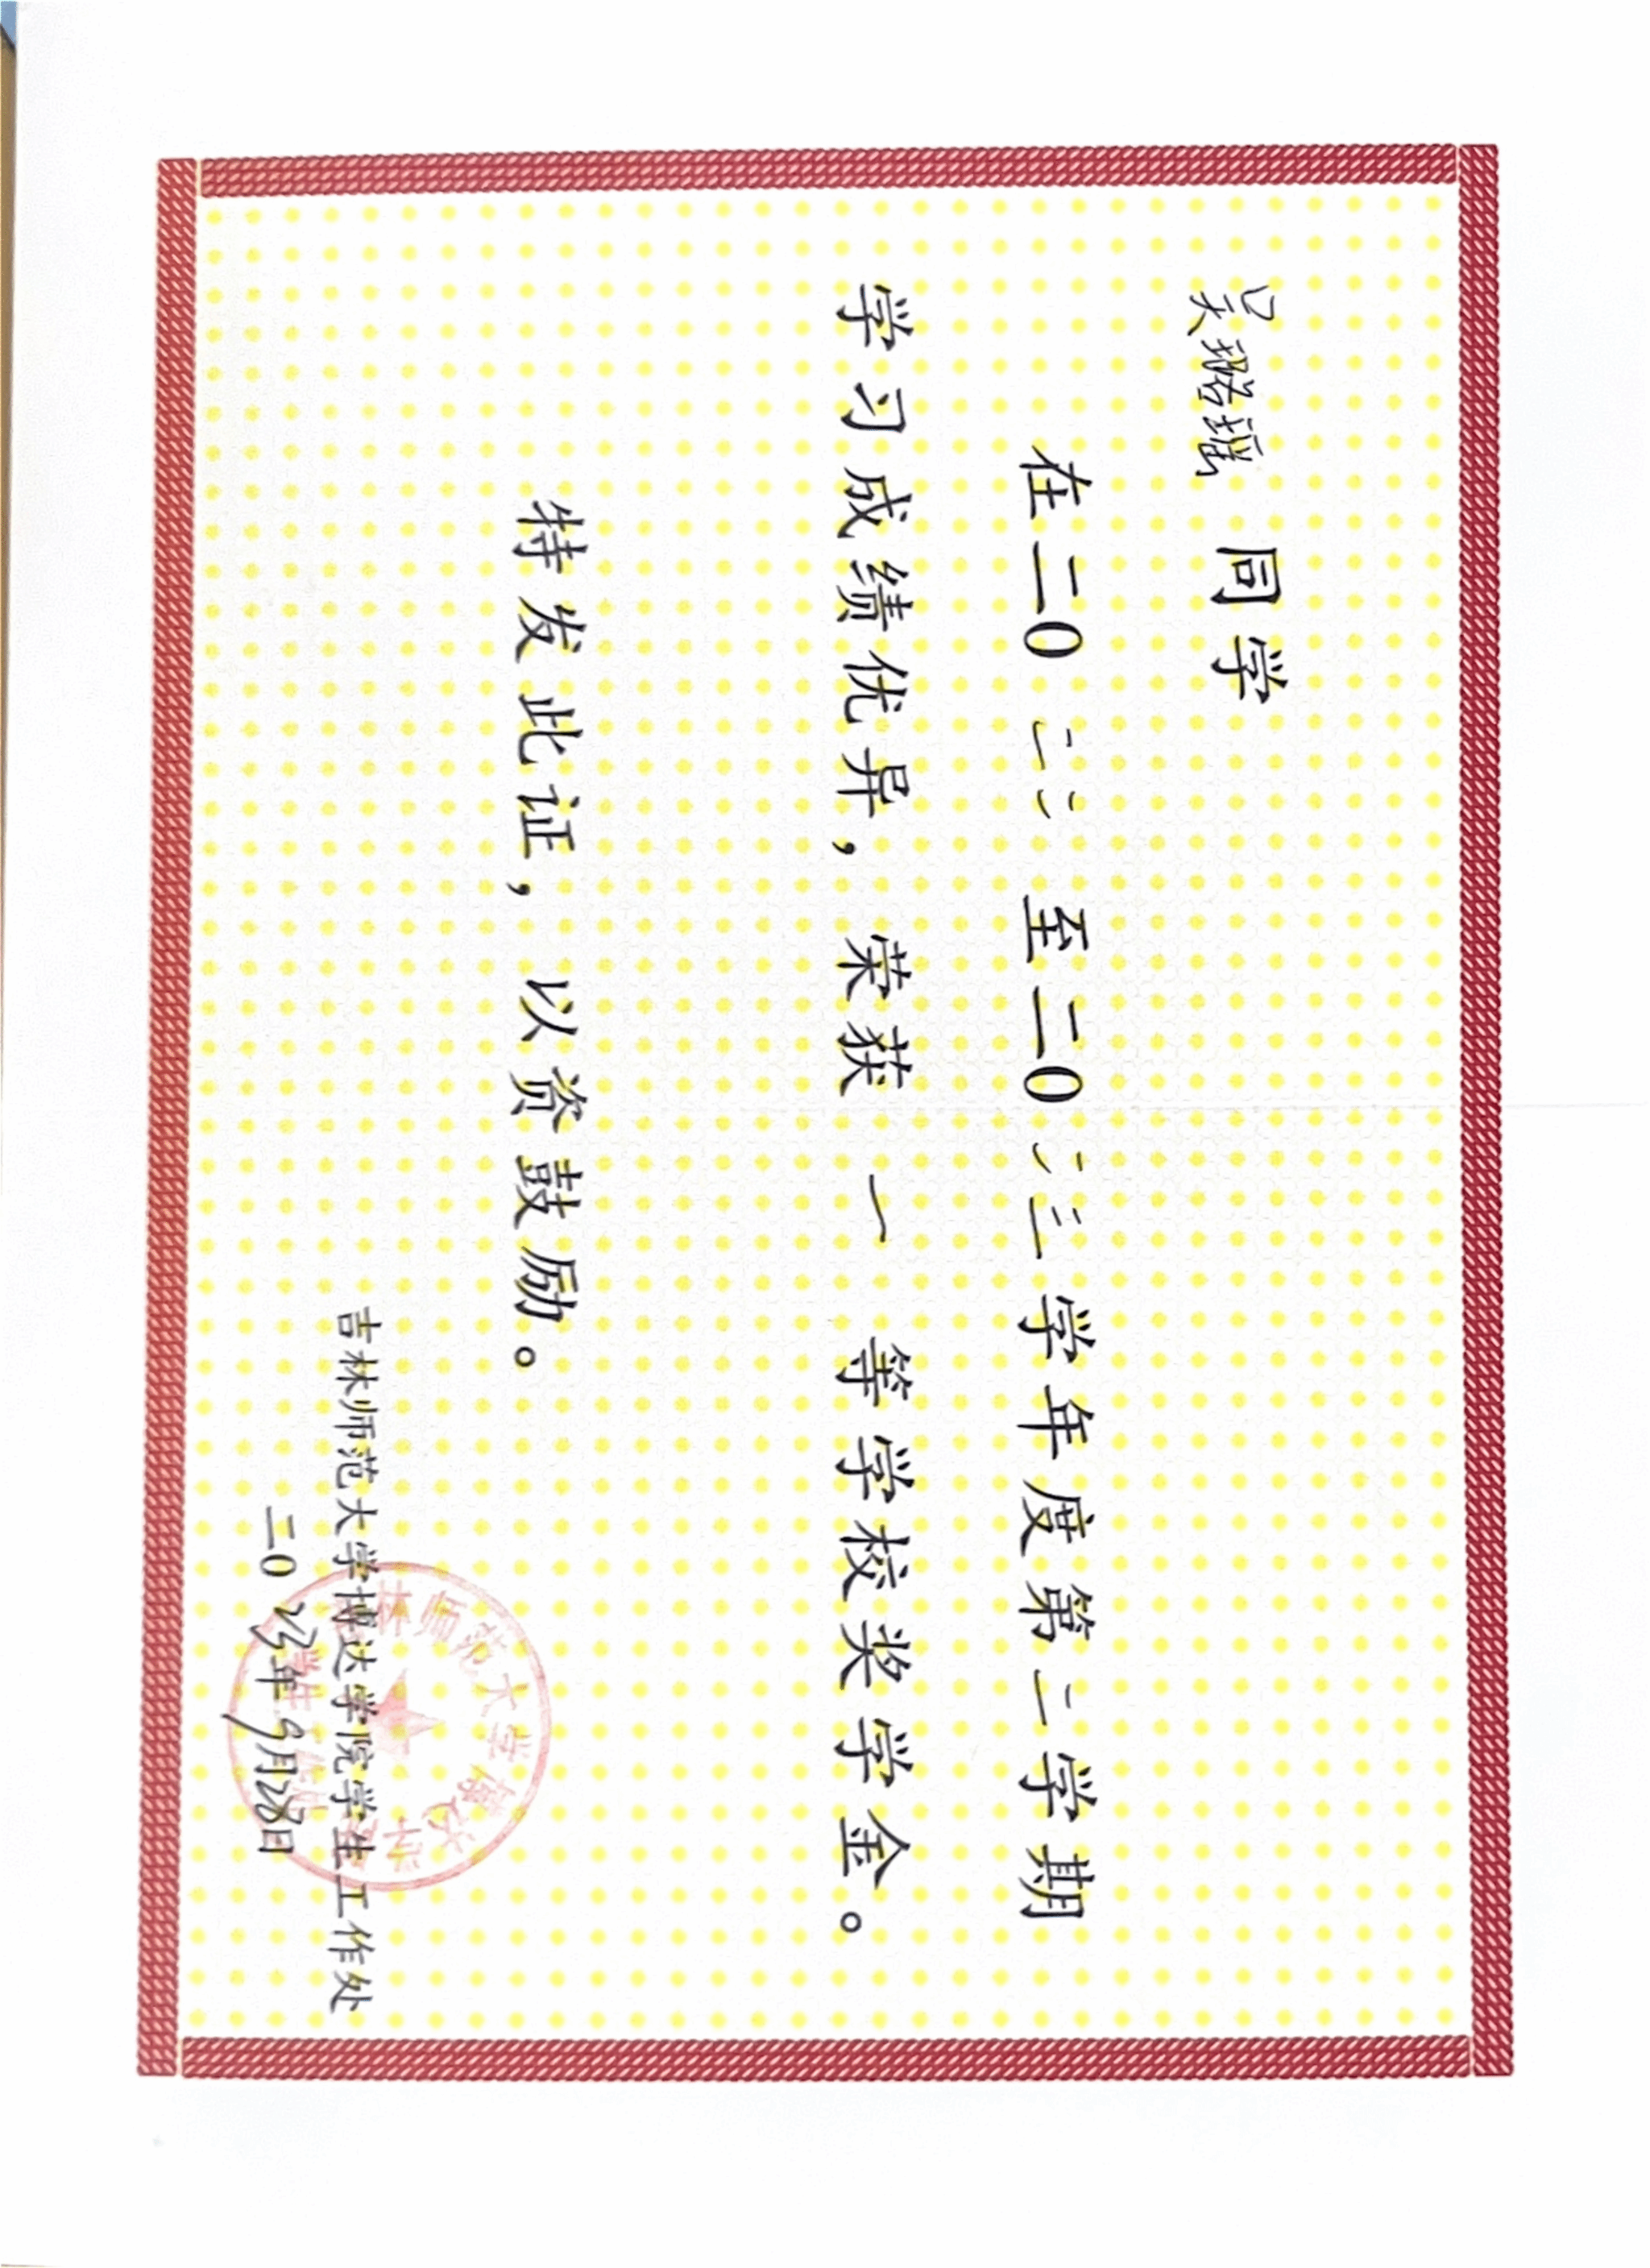 吴珺瑶 同学
在二0二二至二0二三学年度第二学期
学习成绩优异，荣获一等学校奖学金。
特发此证，以资鼓励。
吉林师范大学博达学院学生工作处
二0二三年9月28日
吉林师范大学博达学院